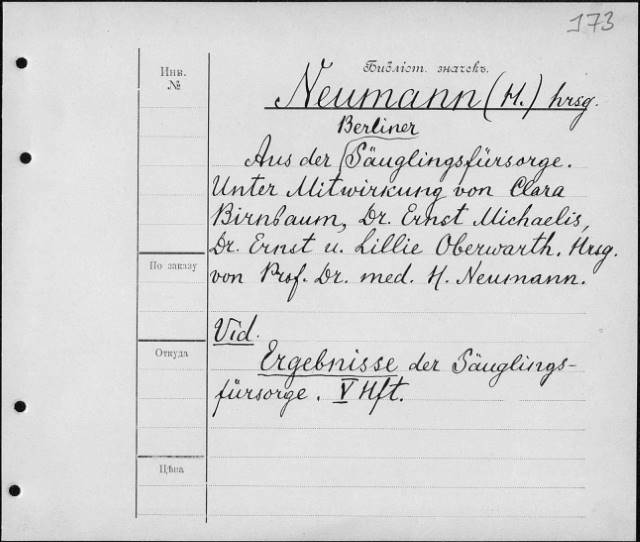 173
Инв.
№
Библіот. значекъ.
Neumann (H.) hrsg.
Berliner
Aus der (Säuglingsfürsorge.
Unter Mitwirkung von Clara
Birnbaum, Dr. Ernst Michaelis,
Dr. Ernst u. Lillie Oberwarth. Hrsg.
По заказу
von Prof. Dr. med. H. Neumann.
Vid.
Откуда
Ergebnisse der Säuglings-
fürsorge. V Hft.
Цѣна